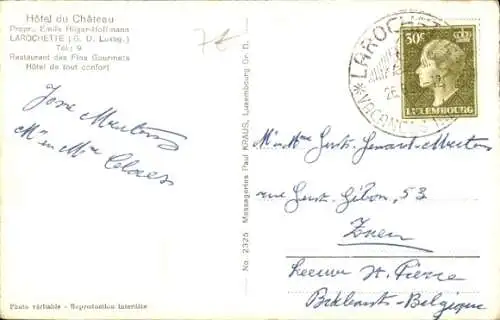 Hôtel du Château
Propr. Emile Hilger-Hoffmann
LAROCHETTE (G. D. Luxbg.)
Tél.: 9
Restaurant des Fins Gourmets
Hôtel de tout confort
José Mertens
Mr en Mme Claes
Photo véritable - Reproduction interdite
No. 2325 Messageries Paul KRAUS, Luxembourg Gr. D.
LAROCHETTE
*VACANCES
26
30c
LUXEMBOURG
Mr Mme Gust. Jenart-Mertens
rue Gust. Gibon, 53
Zuen
Leeuw St. Pierre
Brabant-Belgique